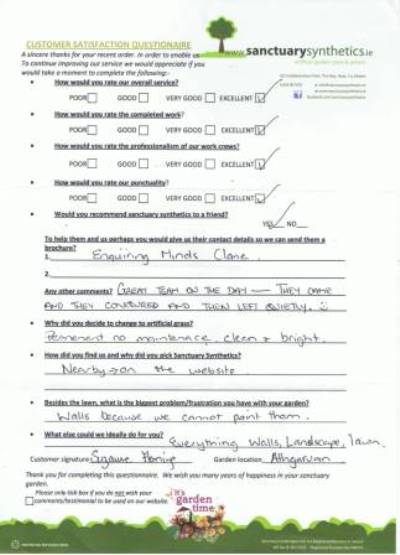 CUSTOMER SATISFACTION QUESTIONAIRE
www.sanctuarysynthetics.ie
A sincere thanks for your recent order. In order to enable us
To continue improving our service we would appreciate if you
would take a moment to complete the following:-
How would you rate our overall service?
POOR GOOD VERY GOOD EXCELLENT
How would you rate the completed work?
POOR GOOD VERY GOOD EXCELLENT
How would you rate the professionalism of our work crews?
POOR GOOD VERY GOOD EXCELLENT
How would you rate our punctuality?
POOR GOOD VERY GOOD EXCELLENT
Would you recommend sanctuary synthetics to a friend?
YES NO
To help them and us perhaps you would give us their contact details so we can send them a
brochure?
1. Enquiring Minds Clane.
2.
Any other comments? GREAT TEAM ON THE DAY — THEY CAME
AND THEY CONQUERED AND THEN LEFT QUIETLY.
Why did you decide to change to artificial grass?
Permenent no maintenace, clean & bright.
How did you find us and why did you pick Sanctuary Synthetics?
Nearby → on the website
Besides the lawn, what is the biggest problem/frustration you have with your garden?
Walls because we cannot paint them.
What else could we ideally do for you? Everything Walls, Landscape, lawn.
Customer signature Garden location Athgarvan
Thank you for completing this questionnaire. We wish you many years of happiness in your sanctuary
garden.
Please only tick box if you do not wish your
comments/testimonial to be used on our website.
it's
garden
time